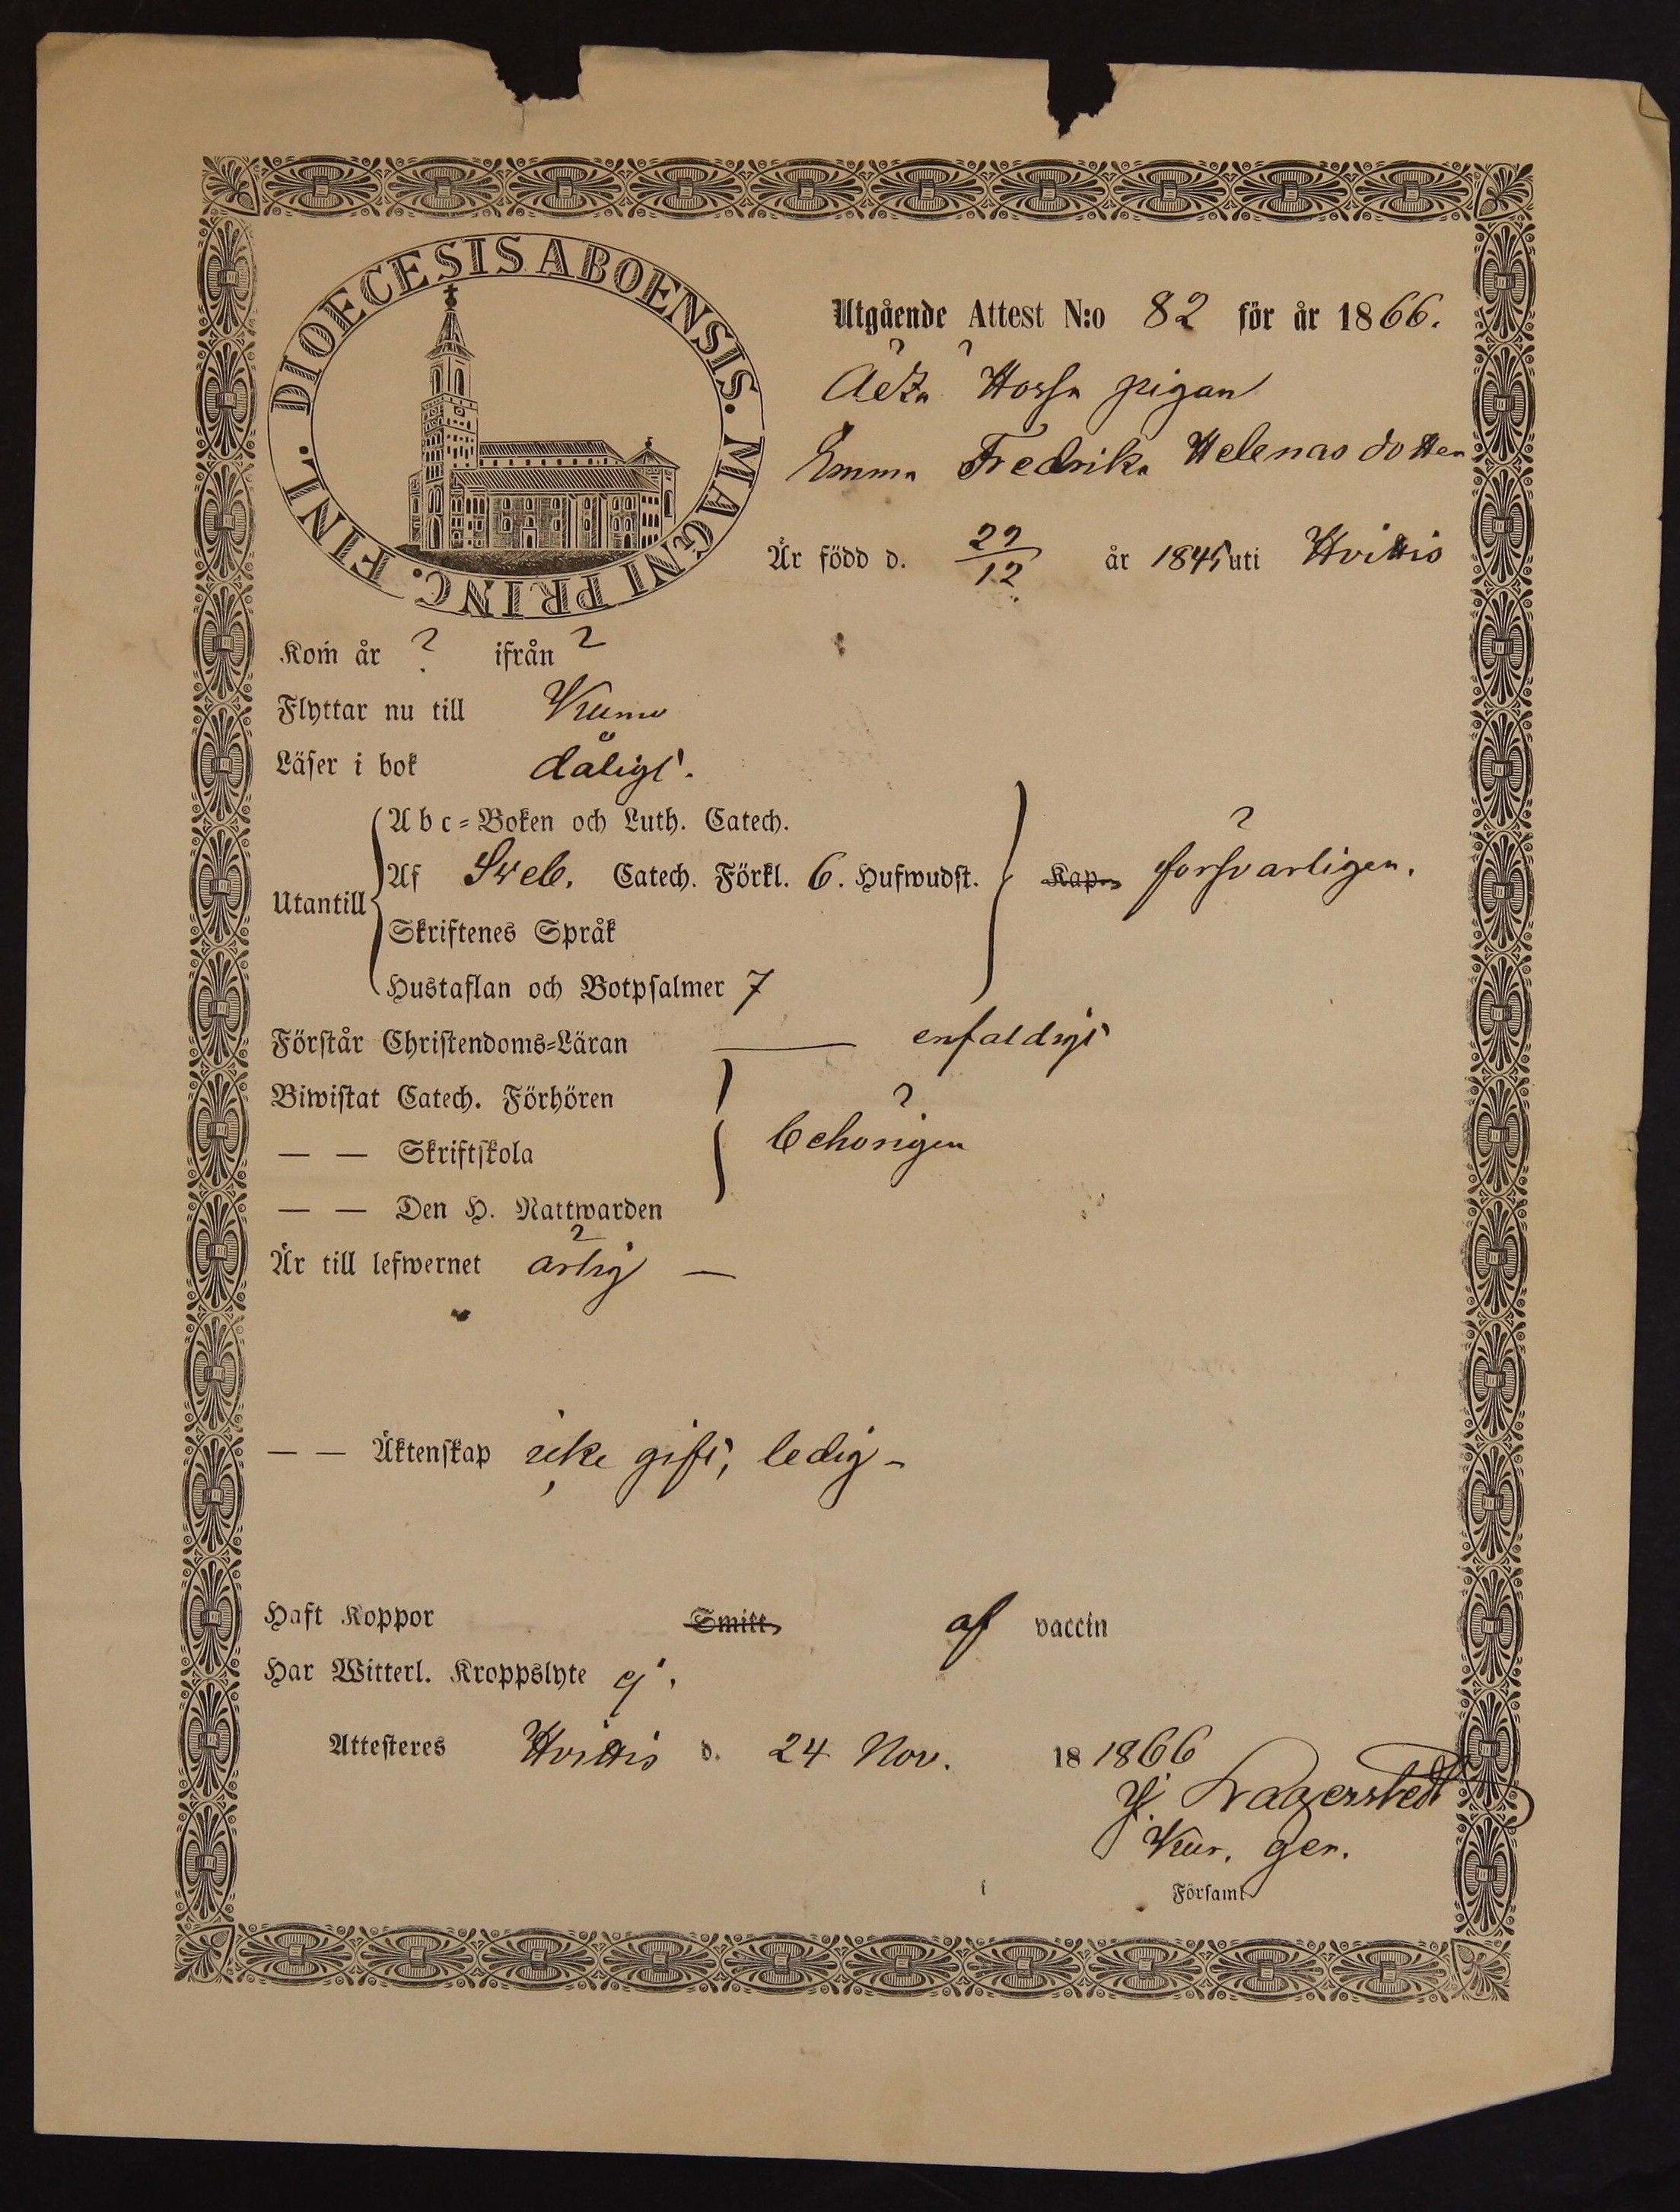 DIOECESIS ABOENSIS. MAGNI PRINC. FINL.
Utgående Attest N:o 82 för år 1866.
pigan
Emma Fredrika Helenas dotter
Är född d. 22/12 år 1845 uti Hvittis
Kom år ? ifrån ?
Flyttar nu till Kumo
Läser i bok dåligt.
Abc-Boken och Luth. Catech.
Af Sveb. Catech. Förkl. 6. Hufwudst. Kap. försvarligen.
Utantill
Skriftenes Språk
Hustaflan och Botpsalmer 7
Förstår Christendoms-Läran — enfaldigt
Biwistat Catech. Förhören
— — Skriftskola behörigen
— — Den H. Nattwarden
Är till lefwernet ärlig —
— — Äktenskap icke gift, ledig -
Haft Koppor Smitt af vaccin
Har Witterl. Kroppslyte ej.
Attesteres Hvittis d. 24 Nov. 18 1866
Lagerstedt
Församl